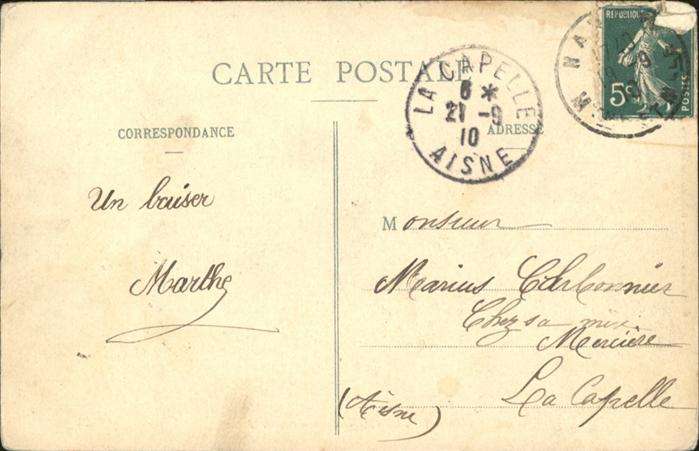 CARTE POSTALE
CORRESPONDANCE
ADRESSE
LA CAPELLE
6 *
21 - 9
10
AISNE
REPUBLIQUE
5c
POSTES
Un baiser
Marthe
Monsieur
Marius Carbonnier
Chez sa
Mercière
La Capelle
(Aisne)